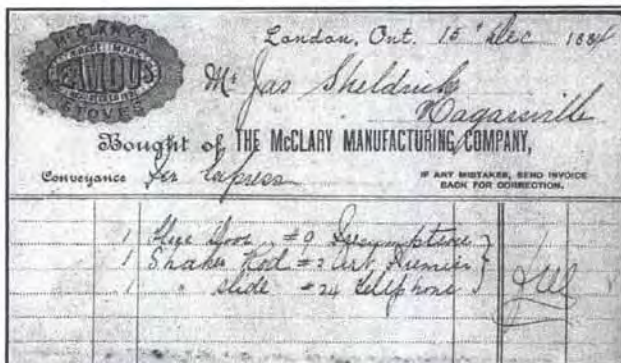 McCLARY'S
TRADE MARK
FAMOUS
STOVES
London, Ont. 15 Dec 1884
Mr Jas Sheldrick
Hagarsville
Bought of THE McCLARY MANUFACTURING COMPANY,
Conveyance Per Express
IF ANY MISTAKES, SEND INVOICE
BACK FOR CORRECTION.
1 Door #9
1 Shaker Rod #2 Art Premier
1 " slide #24 Telephone